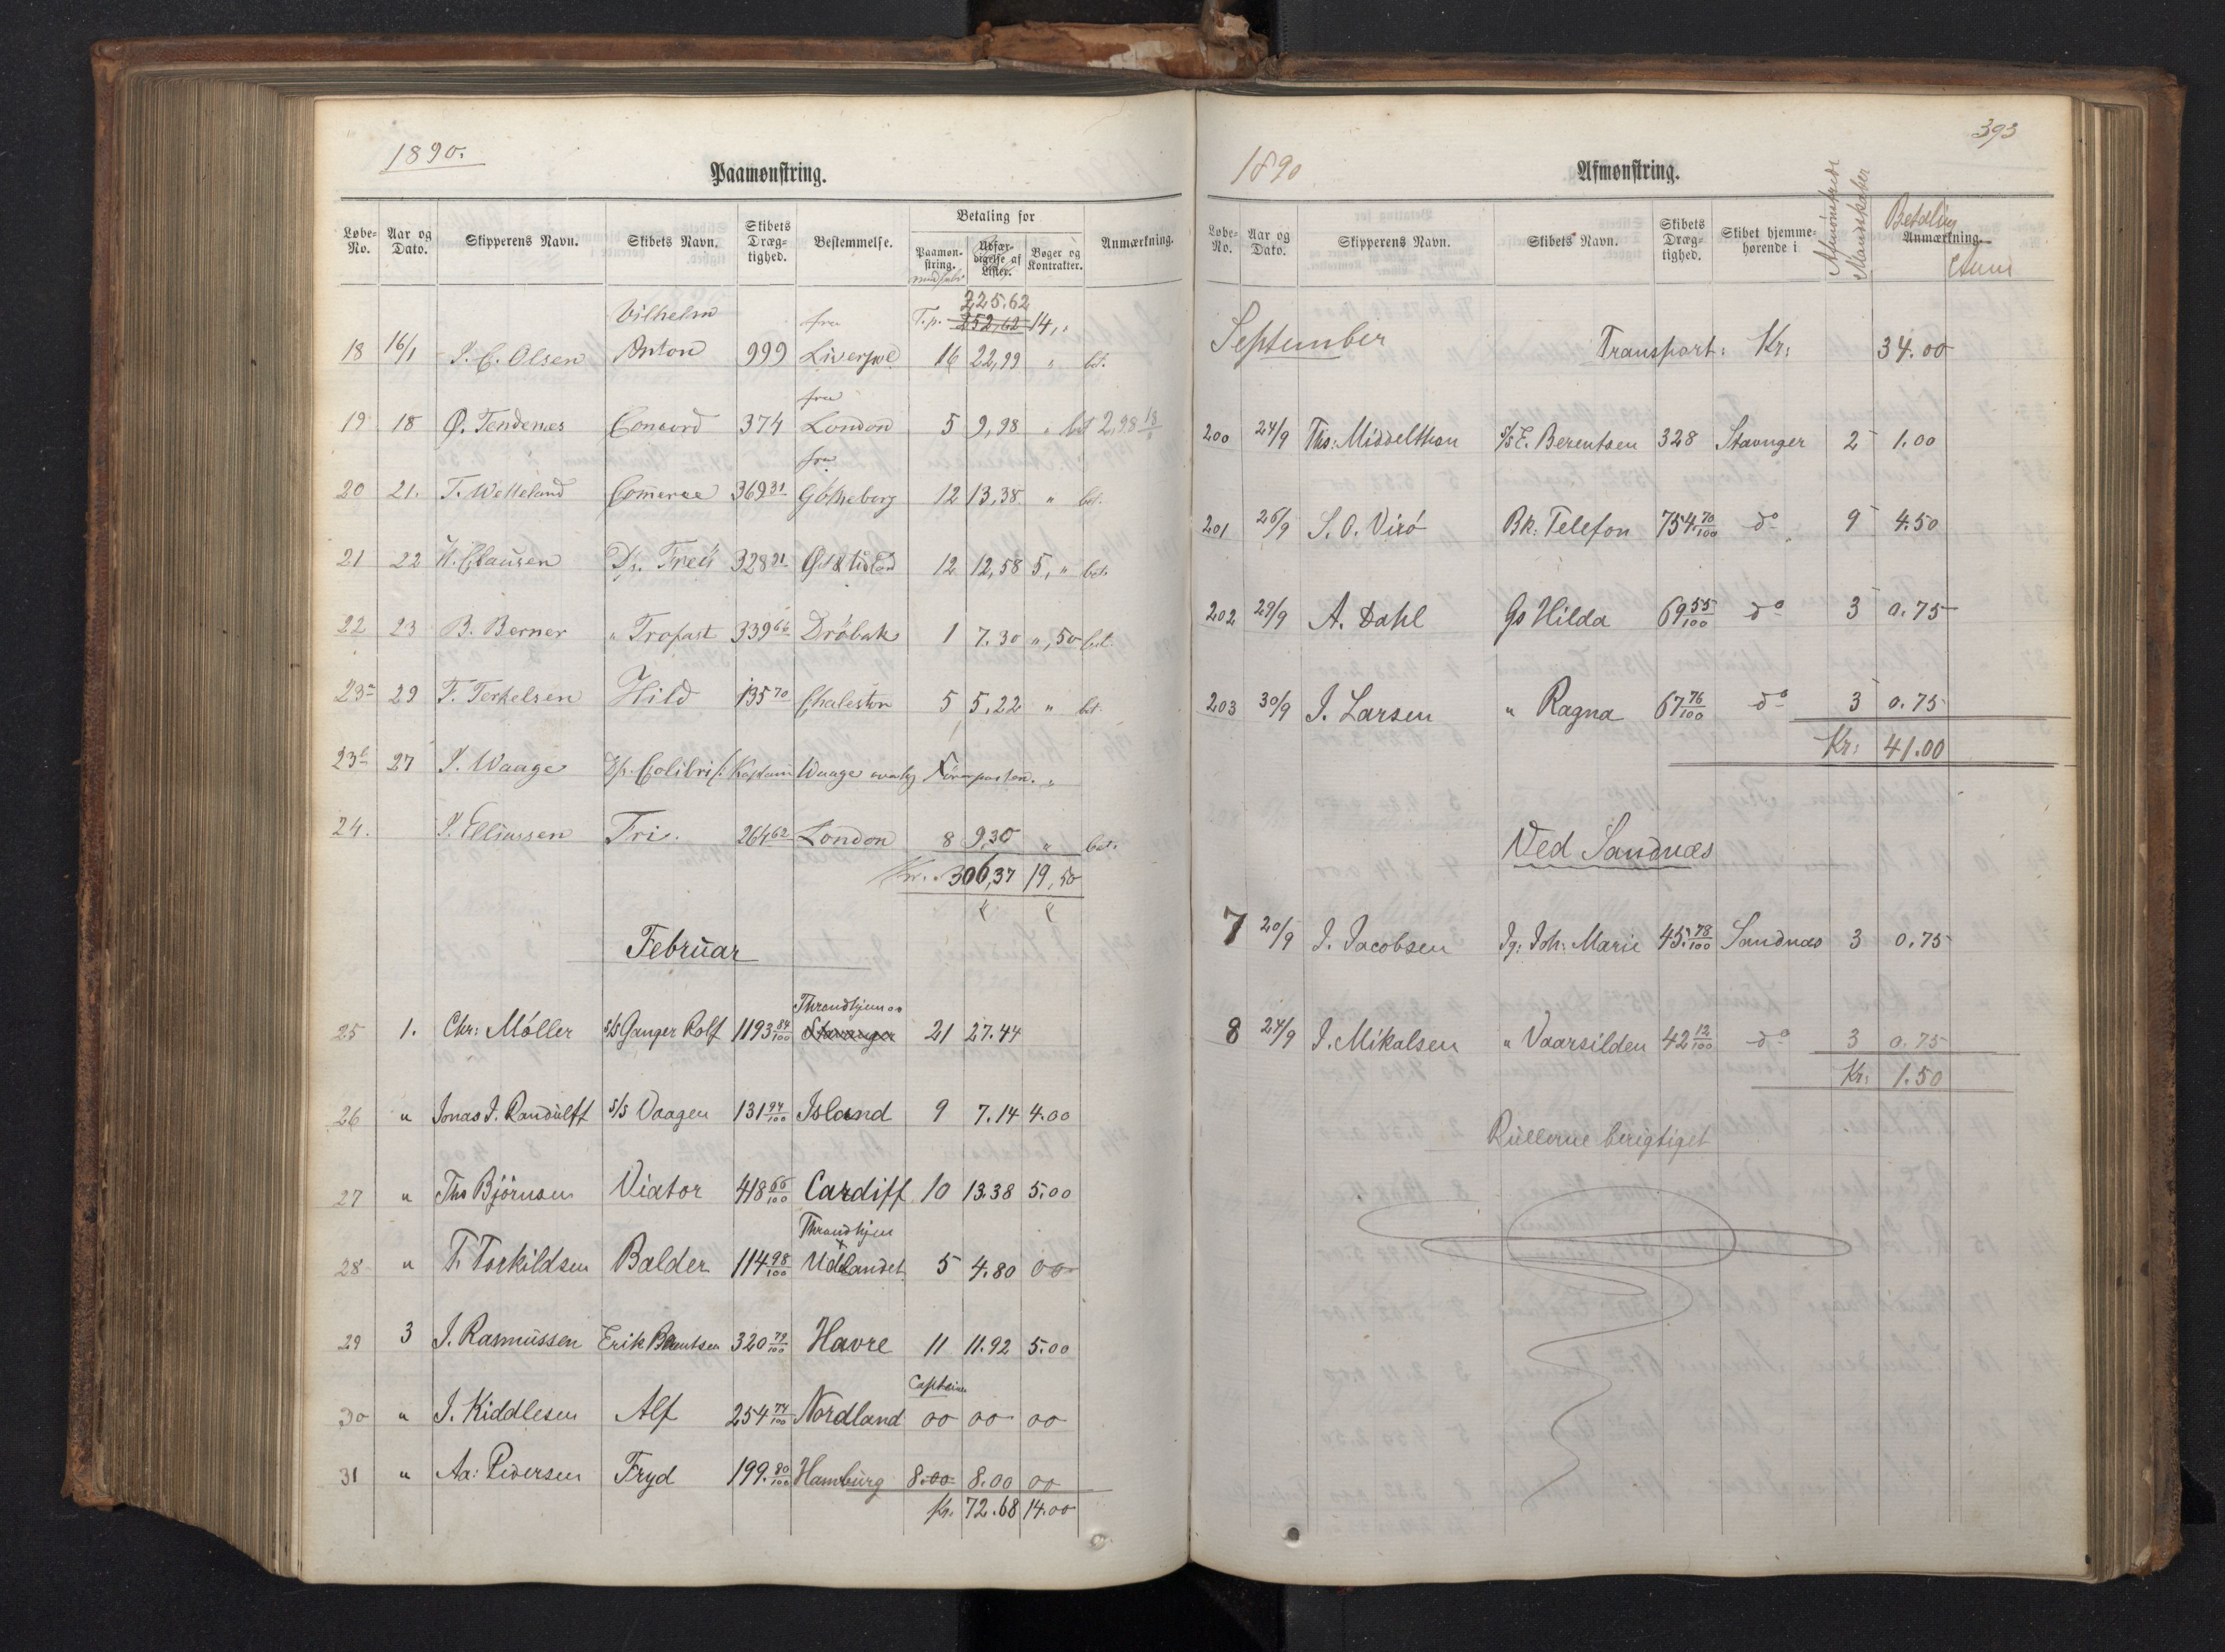 1890.
Paamønstring.
Løbe-No. Aar og Dato. Skipperens Navn. Skibets Navn. Skibets Dræg-tighed. Bestemmelse. Betaling for Paamøn-string. Udfær-digelse af Lister. Bøger og Kontrakter. Anmærkning.
225.62
T.p. 252,62 14,"
18 16/1 S. C. Olsen Vilhelm Anton 999 fra Liverpool 16 22,99 " bet.
19 18 O. Tendenes Concord 374 fra London 5 9,98 " bet 2,98
20 21. T. Wetteland Comerce 369 31 fra Gøtheborg 12 13,38 " bet.
21 22 H. Clausen D/s. Freÿ 328 21 12 12,58 5," bet.
22 23 B. Berner " Trofast 339 66 Drøbak 1 7.30 ",50 bet.
23a 29 T. Torkelsen Hild 135 70 Charleston 5 5,22 " bet.
23b 27 S. Waage D/s. Colibri Kaptain Waage Førerposten. "
24. S. Elliassen Tri. 264 62 London 8 9,30 " bet.
Kr. 306,37 19,50
Februar
25 1. Chr: Møller S/S Ganger Rolf 1193 84/100 Throndhjem Stavanger 21 27.44
26 " Jonas J. Randulff S/S Vaagen 131 94/100 Island 9 7.14 4.00
27 " Ths Bjørnsen Viator 418 65/100 Cardiff 10 13.38 5.00
28 " T. Torkildsen Balder 114 98/100 Throndhjem Udlandet 5 4.80 00
29 3 J. Rasmussen Erik Berentsen 320 79/100 Havre 11 11.92 5.00
30 " J. Kiddlesen Alf 254 74/100 Nordland Captain 00 00 00
31 " Aa: Pedersen Fryd 199. 80/100 Hamburg 8.00 8.00 00
Kr. 72.68 14.00
393
1890
Afmønstring.
Løbe-No. Aar og Dato. Skipperens Navn. Skibets Navn. Skibets Dræg-tighed. Skibet hjemme-hørende i Afmønstrede Mandskaber Betaling Anmærkning.
September Transport: Kr: 34.00
200 24/9 Ths: Middelthon S/S E. Berentsen 328 Stavnger 2 1.00
201 26/9 S. O. Virø Bk: Telefon 754 70/100 do 9 4.50
202 29/9 A. Dahl Gs Hilda 69 55/100 do 3 0.75
203 30/9 J. Larsen " Ragna 67 76/100 do 3 0.75
Kr: 41.00
Ved Sandnæs
7 20/9 J. Jacobsen Jg: Joh: Marie 45. 78/100 Sandnæs 3 0.75
8 24/9 J. Mikalsen " Vaarsilden 42 12/100 do 3 0.75
Kr: 1.50
Rullerne berigtiget